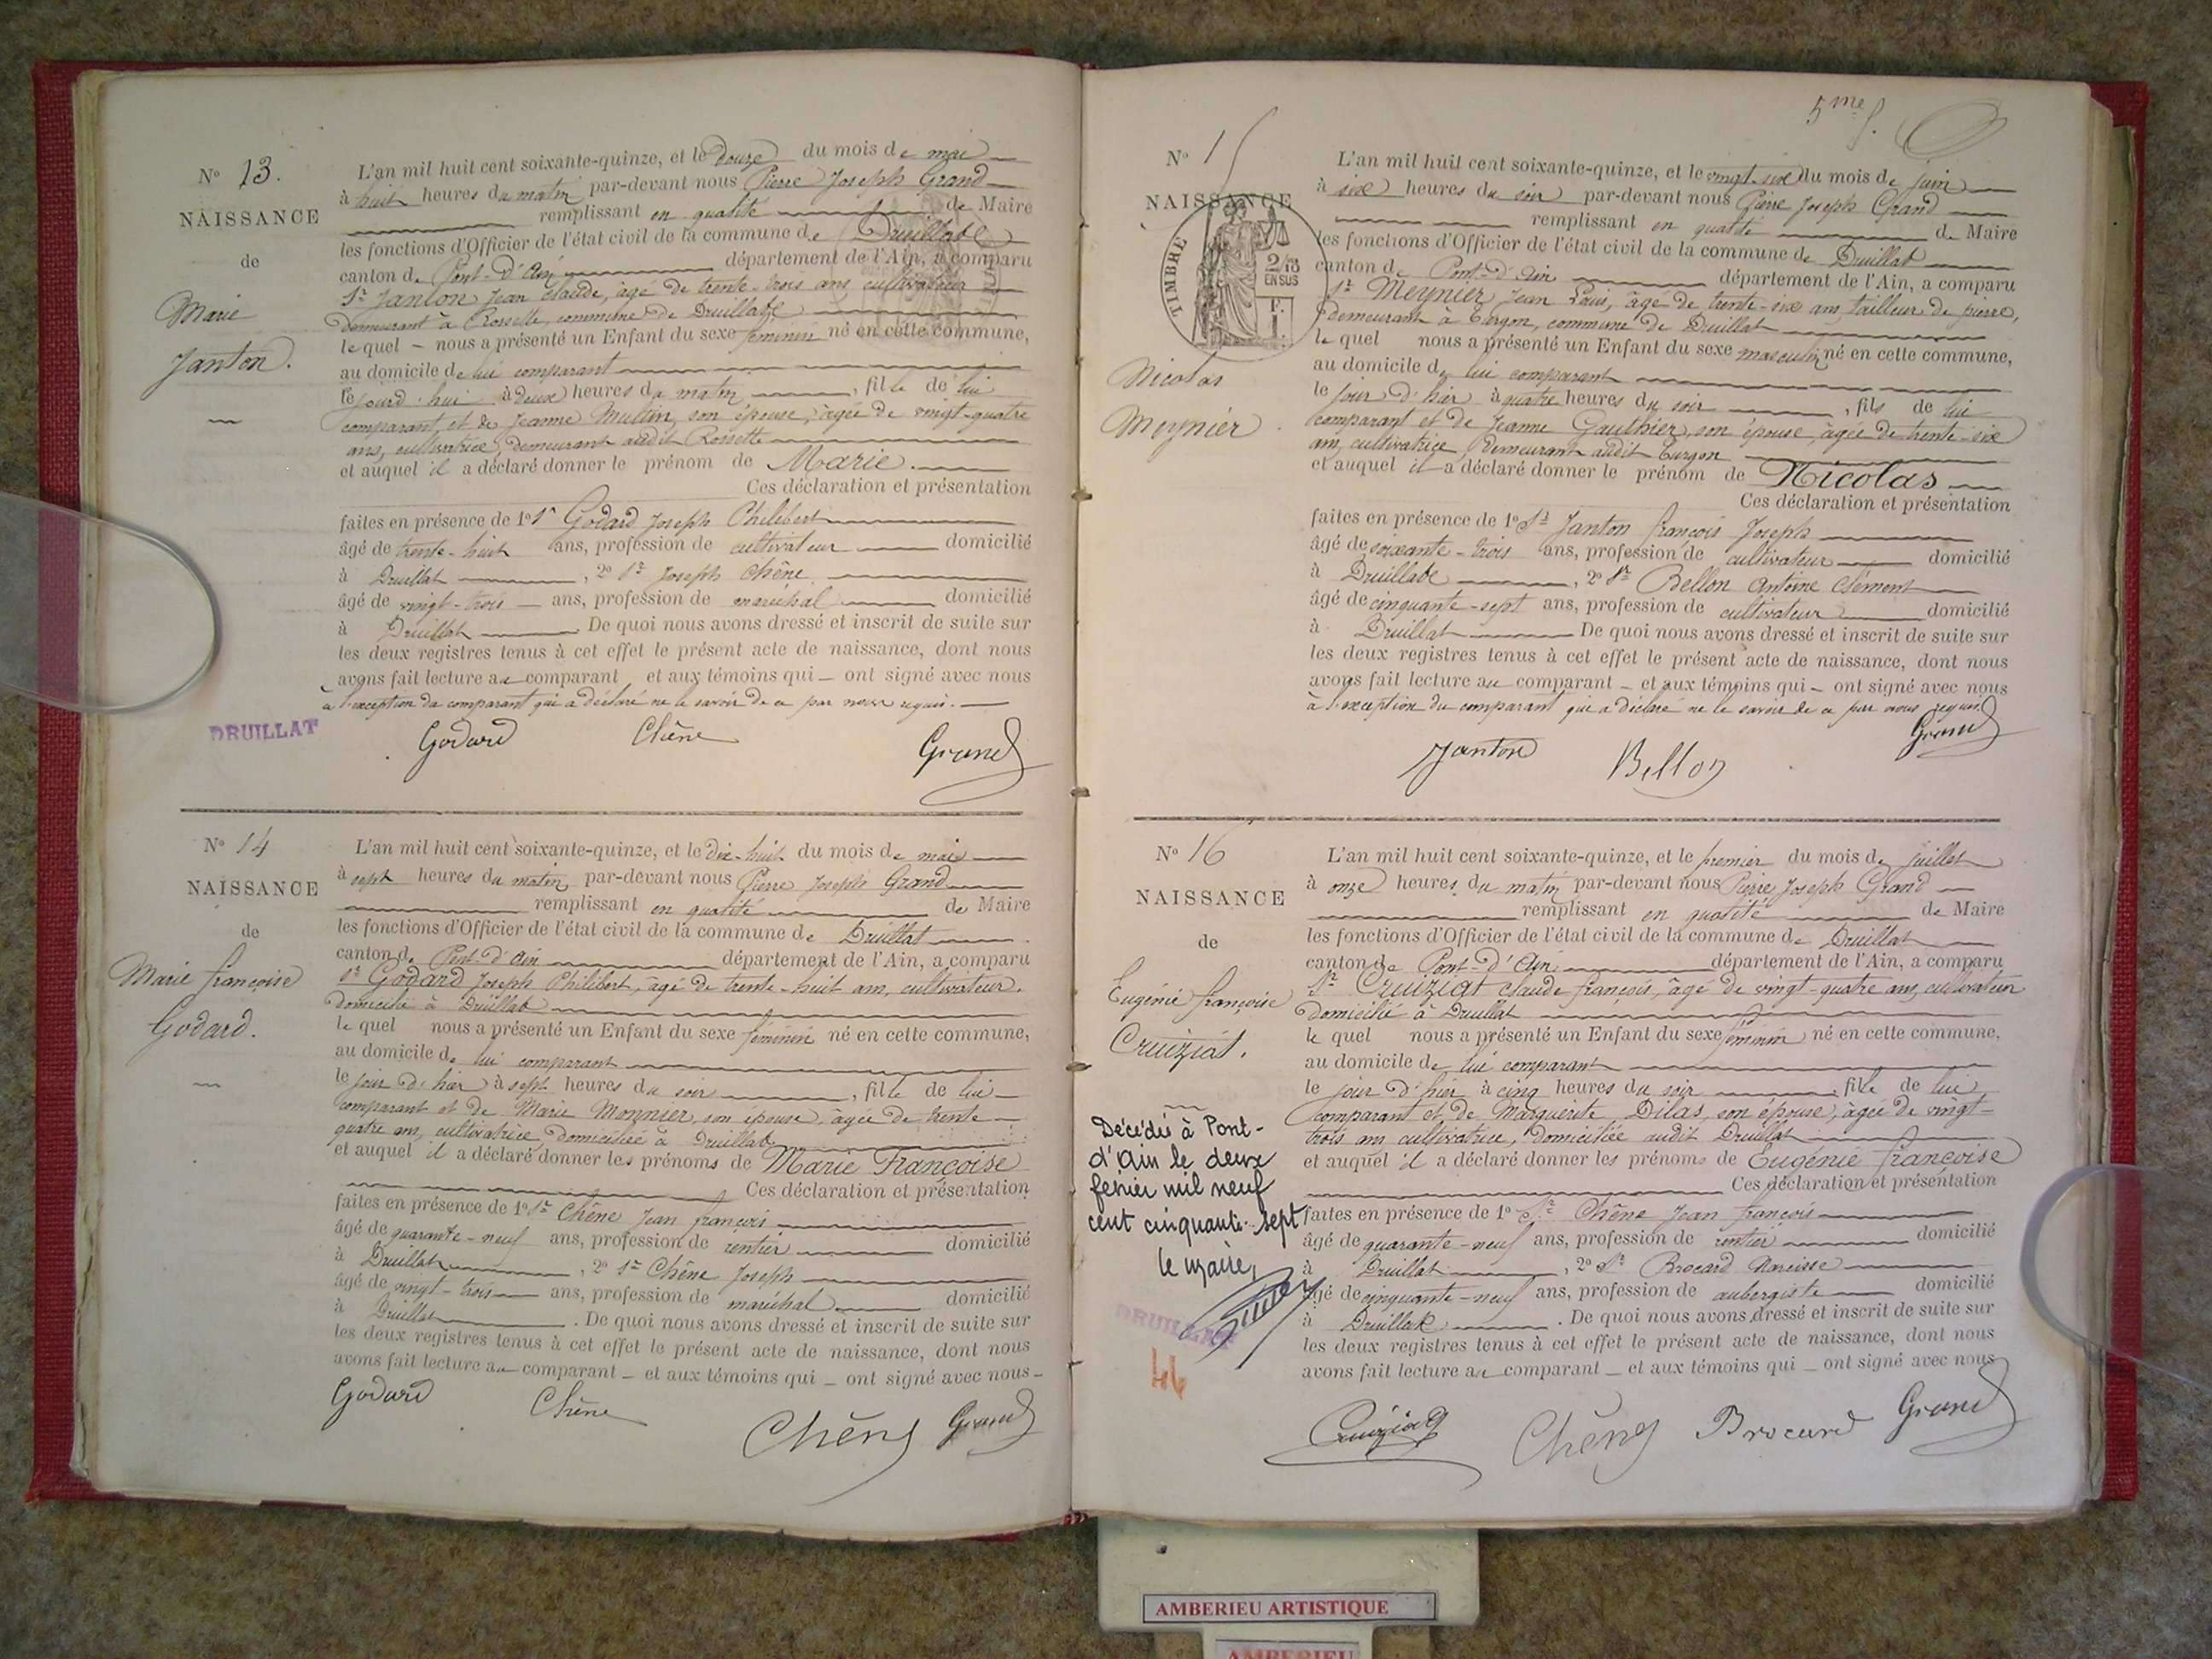 N° 13.
NAISSANCE
de
Marie
Janton.
L'an mil huit cent soixante-quinze, et le douze du mois de mai
à huit heures du matin par-devant nous Pierre Joseph Grand
remplissant en qualité de Maire
les fonctions d'Officier de l'état civil de la commune de Druillat
canton de Pont-d'Ain département de l'Ain, a comparu
Sr Janton Jean Claude, âgé de trente-trois ans cultivateur
demeurant à Rossette, commune de Druillat
lequel nous a présenté un Enfant du sexe féminin né en cette commune,
au domicile de lui comparant
le jourd'hui à deux heures du matin, fille de lui
comparant et de Jeanne son épouse, âgée de vingt-quatre
ans, cultivatrice, demeurant audit Rossette
et auquel il a déclaré donner le prénom de Marie.
Ces déclaration et présentation
faites en présence de 1° Sr Godard Joseph Philibert
âgé de trente-huit ans, profession de cultivateur domicilié
à Druillat, 2° Sr Joseph Chêne
âgé de vingt-trois ans, profession de maréchal domicilié
à Druillat De quoi nous avons dressé et inscrit de suite sur
les deux registres tenus à cet effet le présent acte de naissance, dont nous
avons fait lecture au comparant et aux témoins qui ont signé avec nous
à l'exception du comparant qui a déclaré ne le savoir de ce par nous requis.
DRUILLAT
Godard Chêne Grand
N° 14
NAISSANCE
de
Marie françoise
Godard.
L'an mil huit cent soixante-quinze, et le dix-huit du mois de mai
à sept heures du matin par-devant nous Pierre Joseph Grand
remplissant en qualité de Maire
les fonctions d'Officier de l'état civil de la commune de Druillat
canton de Pont-d'Ain département de l'Ain, a comparu
Sr Godard Joseph Philibert, âgé de trente-huit ans, cultivateur,
domicilié à Druillat
lequel nous a présenté un Enfant du sexe féminin né en cette commune,
au domicile de lui comparant
le jour d'hier à sept heures du soir, fille de lui
comparant et de Marie Monnier, son épouse, âgée de trente
quatre ans, cultivatrice, domiciliée à Druillat
et auquel il a déclaré donner les prénoms de Marie Françoise
Ces déclaration et présentation
faites en présence de 1° Sr Chêne Jean françois
âgé de quarante-neuf ans, profession de rentier domicilié
à Druillat, 2° Sr Chêne Joseph
âgé de vingt-trois ans, profession de maréchal domicilié
à Druillat. De quoi nous avons dressé et inscrit de suite sur
les deux registres tenus à cet effet le présent acte de naissance, dont nous
avons fait lecture au comparant et aux témoins qui ont signé avec nous
Godard Chêne Chêne Grand
5me f.
N° 15
NAISSANCE
TIMBRE
2/10
EN SUS
F.
1
Nicolas
Meynier.
L'an mil huit cent soixante-quinze, et le vingt-six du mois de juin
à six heures du soir par-devant nous Pierre Joseph Grand
remplissant en qualité de Maire
les fonctions d'Officier de l'état civil de la commune de Druillat
canton de Pont-d'Ain département de l'Ain, a comparu
Sr Meynier Jean Louis, âgé de trente-six ans, tailleur de pierre,
demeurant à Turgon, commune de Druillat
lequel nous a présenté un Enfant du sexe masculin né en cette commune,
au domicile de lui comparant
le jour d'hier à quatre heures du soir, fils de lui
comparant et de Jeanne Gaulthier, son épouse, âgée de trente-six
ans, cultivatrice, demeurant audit Turgon
et auquel il a déclaré donner le prénom de Nicolas
Ces déclaration et présentation
faites en présence de 1° Sr Janton françois Joseph
âgé de soixante-trois ans, profession de cultivateur domicilié
à Druillat, 2° Sr Bellon Antoine Clément
âgé de cinquante-sept ans, profession de cultivateur domicilié
à Druillat De quoi nous avons dressé et inscrit de suite sur
les deux registres tenus à cet effet le présent acte de naissance, dont nous
avons fait lecture au comparant et aux témoins qui ont signé avec nous
à l'exception du comparant qui a déclaré ne le savoir de ce par nous requis.
Janton Bellon Grand
N° 16
NAISSANCE
de
Eugénie françoise
Cruiziat.
Décédée à Pont-
d'Ain le deux
février mil neuf
cent cinquante-sept
le maire,
DRUILLAT
46
L'an mil huit cent soixante-quinze, et le premier du mois de juillet
à onze heures du matin par-devant nous Pierre Joseph Grand
remplissant en qualité de Maire
les fonctions d'Officier de l'état civil de la commune de Druillat
canton de Pont-d'Ain département de l'Ain, a comparu
Sr Cruiziat claude françois, âgé de vingt-quatre ans, cultivateur
domicilié à Druillat
lequel nous a présenté un Enfant du sexe féminin né en cette commune,
au domicile de lui comparant
le jour d'hier à cinq heures du soir, fille de lui
comparant et de Marguerite Dilas, son épouse, âgée de vingt-
trois ans cultivatrice, domiciliée audit Druillat
et auquel il a déclaré donner les prénoms de Eugénie françoise
Ces déclaration et présentation
faites en présence de 1° Sr Chêne Jean françois
âgé de quarante-neuf ans, profession de rentier domicilié
à Druillat, 2° Sr Brocard Narcisse
âgé de cinquante-neuf ans, profession de aubergiste domicilié
à Druillat. De quoi nous avons dressé et inscrit de suite sur
les deux registres tenus à cet effet le présent acte de naissance, dont nous
avons fait lecture au comparant et aux témoins qui ont signé avec nous
Cruiziat Chêne Brocard Grand
AMBERIEU ARTISTIQUE
AMBERIEU